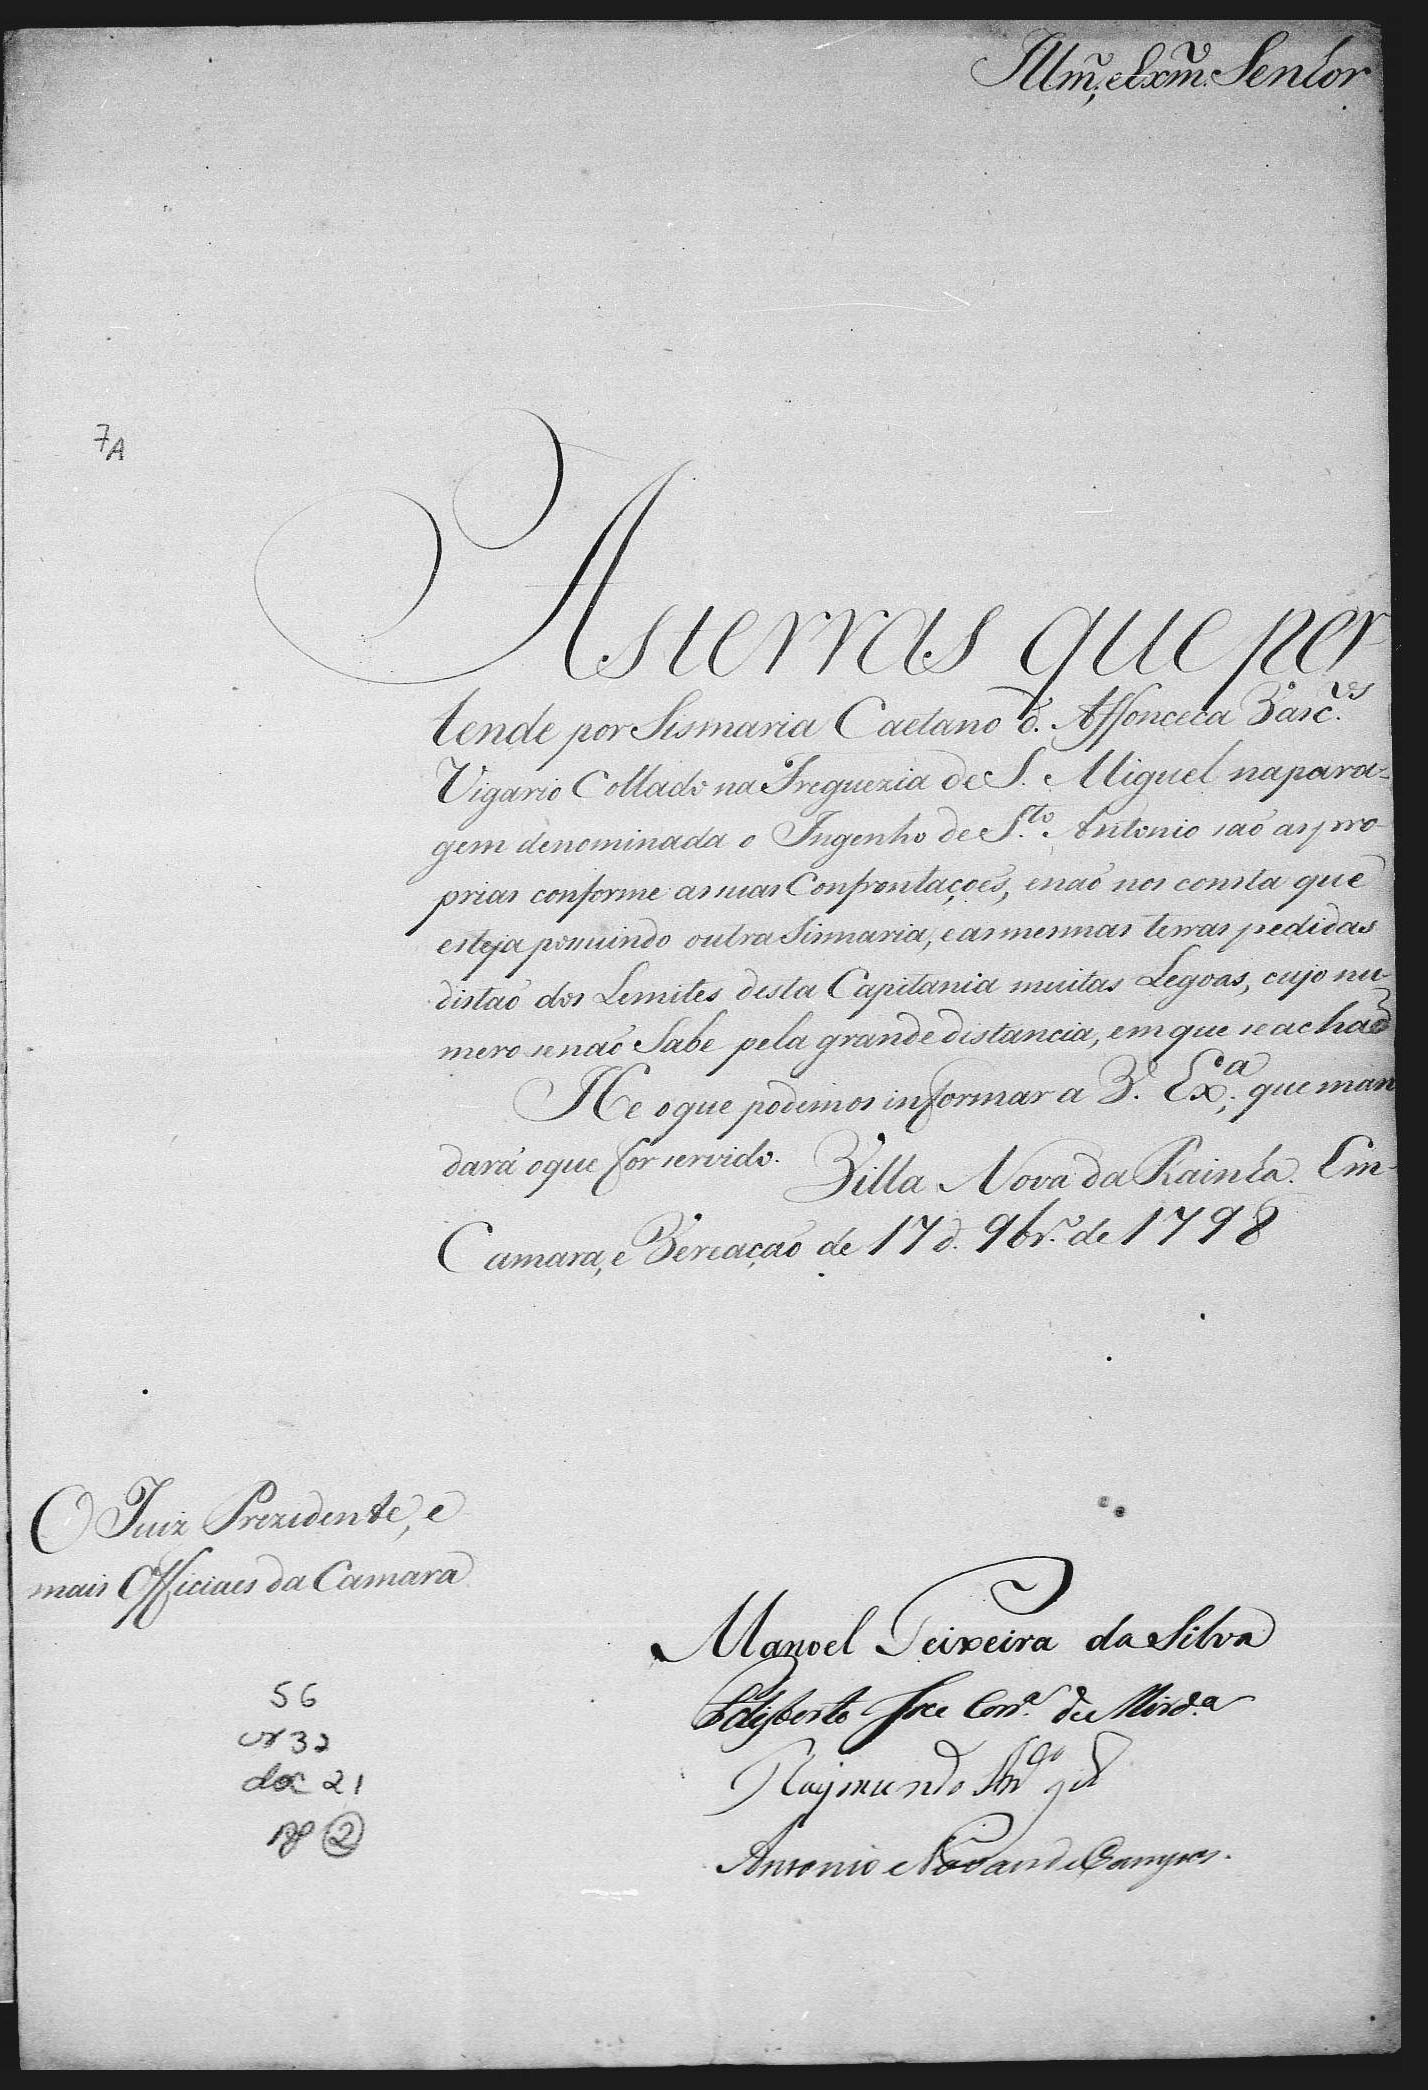 Illm̃., e Exm̃. Senhor
7A
As terras que per
tende por Sismaria Caetano d. Affonceca Vasc.ˡᵒˢ
Vigario Collado na Freguezia de S. Miguel na para=
gem denominada o Ingenho de S.ᵗᵒ Antonio saõ as pro-
prias conforme as suas Confrontaçoẽs, e naõ nos consta que
esteja possuindo outra Sismaria, e as mesmas terras pedidas
distaõ dos Lemites desta Capitania muitas Legoas, cujo nu-
mero se naõ Sabe pela grande distancia, em que se achaõ
He o que podemos informar a V. Ex.ᵃ, que man
dará o que for servido. Villa Nova da Rainha. Em
Camara, e Vereaçaõ de 17 d. 9br.º de 1798
O Juiz Prezidente, e
mais Officiaes da Camara
Manoel Teixeira da Silva
Joze Corr.ᵃ de Mird.ᵃ
Raymundo
Antonio de Campos.
56
cx 32
doc 21
2